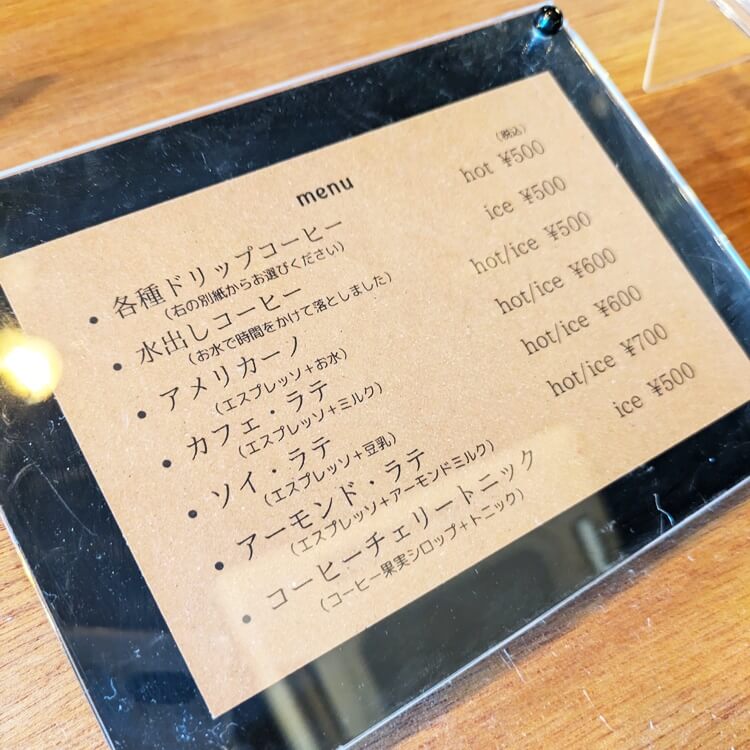 menu
(税込)
・各種ドリップコーヒー hot ¥500
(右の別紙からお選びください)
・水出しコーヒー ice ¥500
(お水で時間をかけて落としました)
・アメリカーノ hot/ice ¥500
(エスプレッソ+お水)
・カフェ・ラテ hot/ice ¥600
(エスプレッソ+ミルク)
・ソイ・ラテ hot/ice ¥600
(エスプレッソ+豆乳)
・アーモンド・ラテ hot/ice ¥700
(エスプレッソ+アーモンドミルク)
・コーヒーチェリートニック ice ¥500
(コーヒー果実シロップ+トニック)